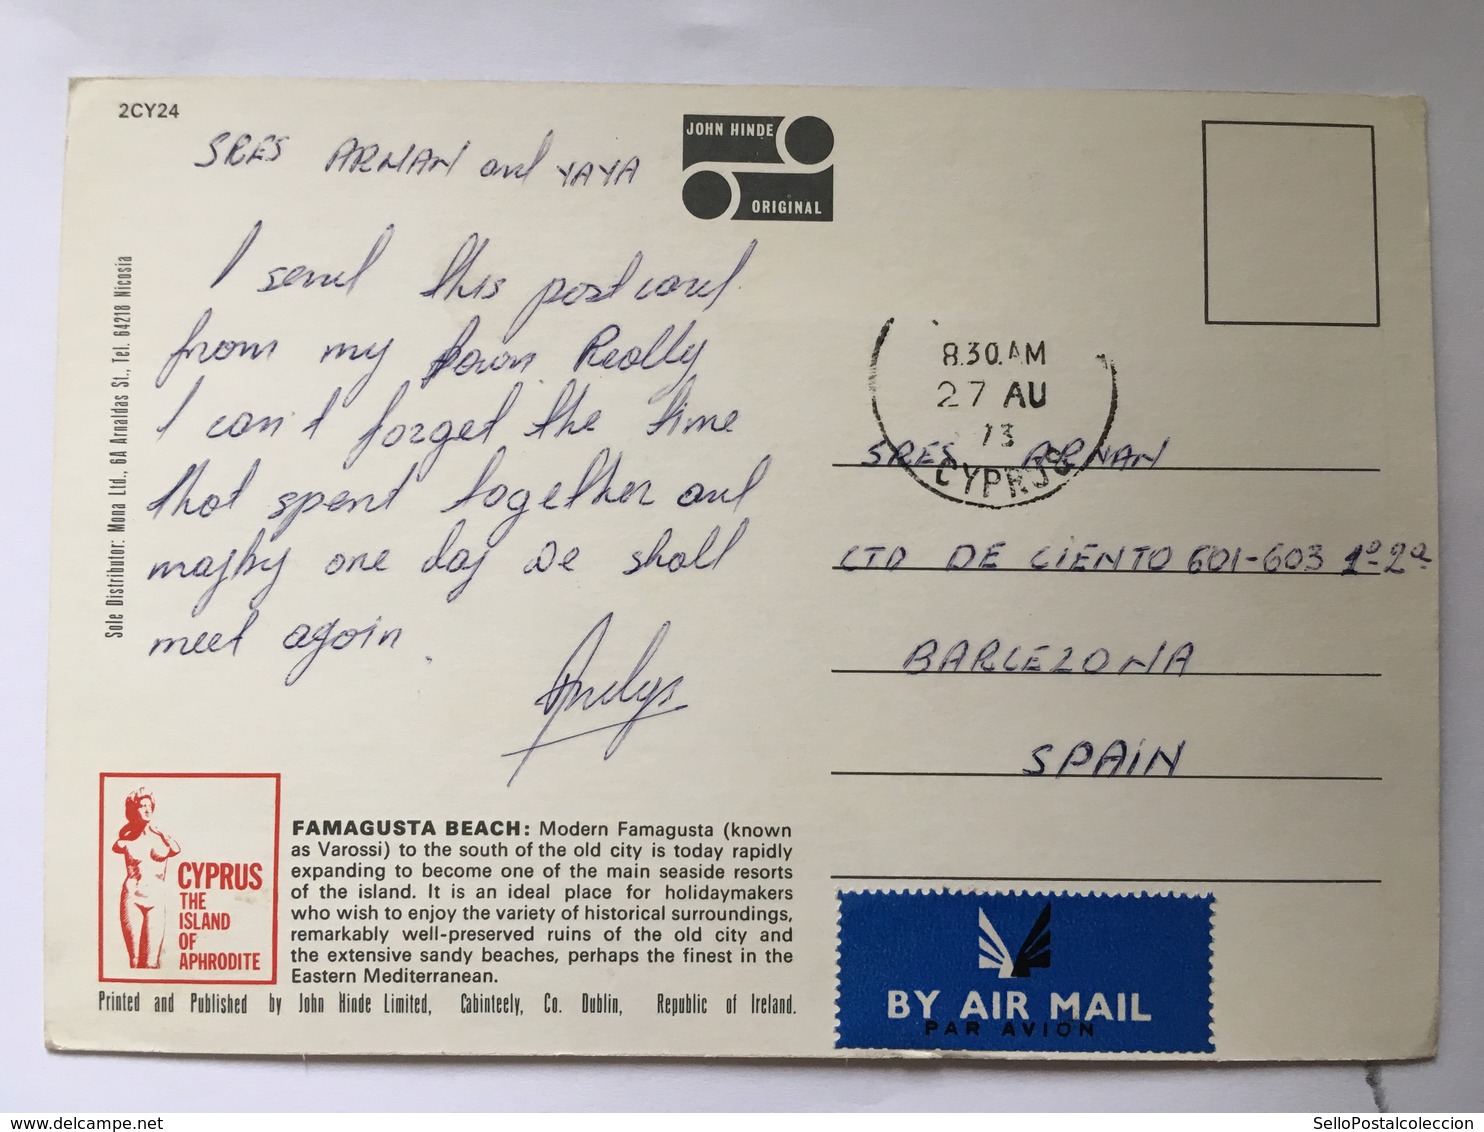 2CY24
SRES ARNAN and YAYA
I send this postcard
from my town Really
I can't forget the time
that spent together and
mayby one day we shall
meet again.
Andys
Sole Distributor: Mona Ltd., 6A Arnaldas St., Tel. 64218 Nicosia
JOHN HINDE
ORIGINAL
8.30.AM
27 AU
73
CYPRUS
SRES ARNAN
CTD DE CIENTO 601-603 1º-2ª
BARCELONA
SPAIN
CYPRUS
THE
ISLAND
OF
APHRODITE
FAMAGUSTA BEACH: Modern Famagusta (known
as Varossi) to the south of the old city is today rapidly
expanding to become one of the main seaside resorts
of the island. It is an ideal place for holidaymakers
who wish to enjoy the variety of historical surroundings,
remarkably well-preserved ruins of the old city and
the extensive sandy beaches, perhaps the finest in the
Eastern Mediterranean.
Printed and Published by John Hinde Limited, Cabinteely, Co. Dublin, Republic of Ireland.
BY AIR MAIL
PAR AVION
delcampe.net
SelloPostalcoleccion